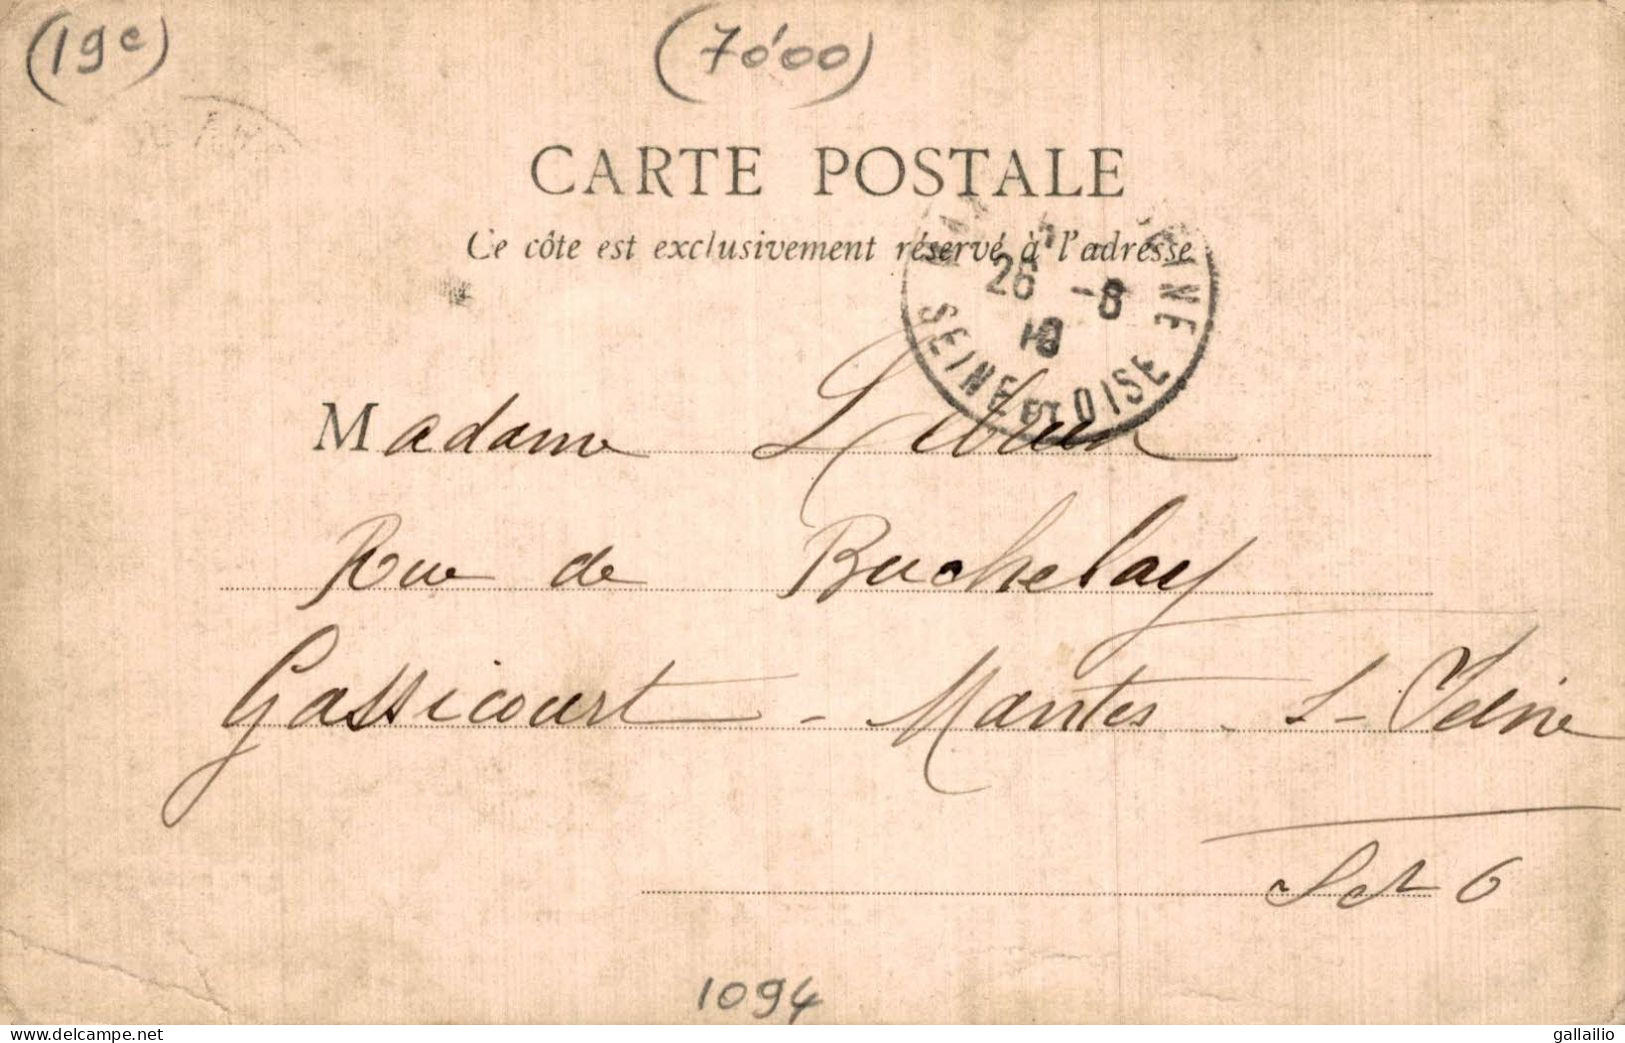 (19e)
(70'00)
CARTE POSTALE
Ce côte est exclusivement réservé à l'adresse
26 -8
SEINE ET OISE
Madame Lebrun
Rue de Buchelay
Gassicourt - Mantes - s - Seine
S et O
1094
delcampe.net
gallailio